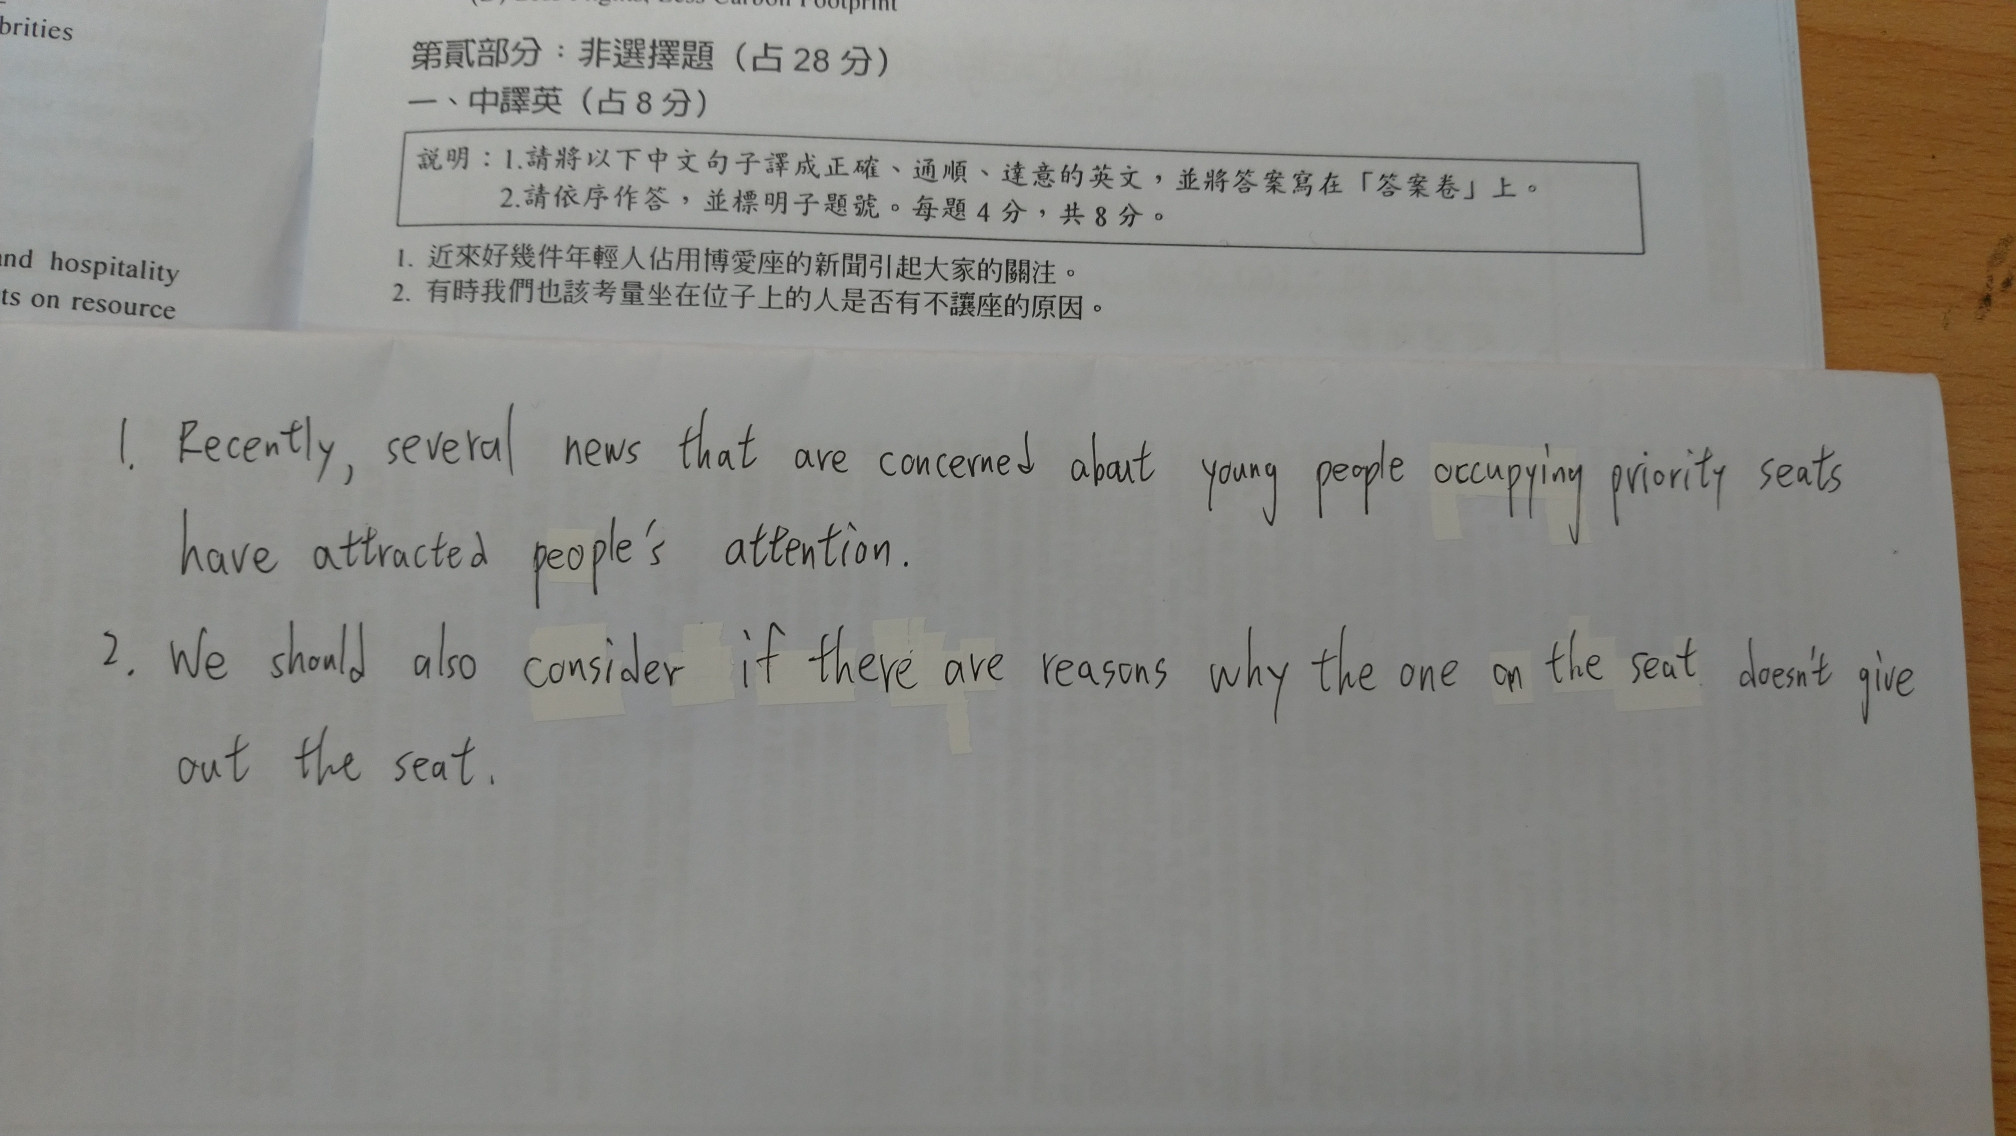 brities
and hospitality
ts on resource
Carbon Footprint
第貳部分：非選擇題（占 28 分）
一、中譯英（占 8 分）
說明：1.請將以下中文句子譯成正確、通順、達意的英文，並將答案寫在「答案卷」上。
2.請依序作答，並標明子題號。每題 4 分，共 8 分。
1. 近來好幾件年輕人佔用博愛座的新聞引起大家的關注。
2. 有時我們也該考量坐在位子上的人是否有不讓座的原因。
1. Recently, several news that are concerned about young people occupying priority seats
have attracted people's attention.
2. We should also consider if there are reasons why the one on the seat doesn't give
out the seat.